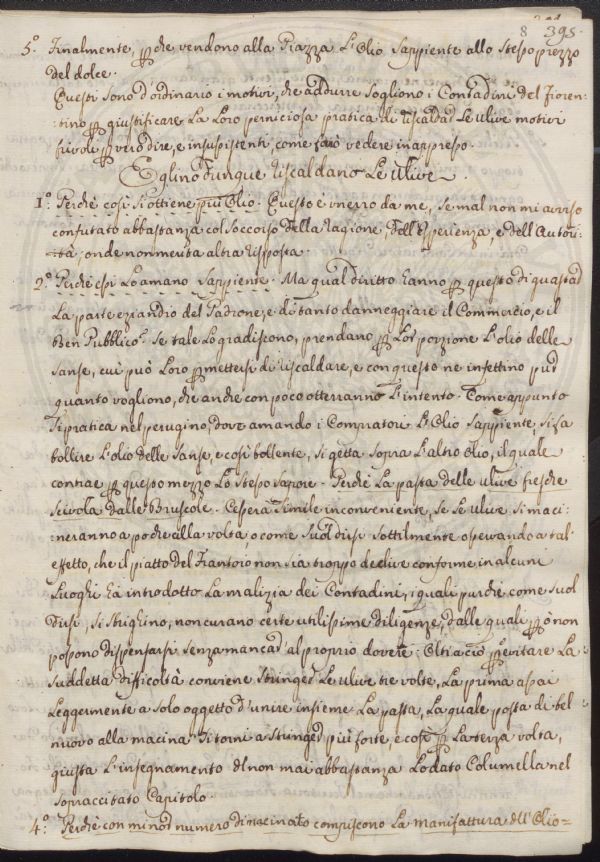 8 395.
5.° Finalmente, p che vendono alla Piazza L'Olio Sappiente allo stesso prezzo
del dolce.
Questi sono d'ordinario i motivi, che addurre sogliono i Contadini del Fioren-
:tino p giustificare La Loro perniciosa pratica di riscaldar Le ulive motivi
frivoli p vero dire, e insussistenti, come farò vedere in appresso.
Eglino dunque riscaldano Le ulive.
1.° Perchè così si ottiene più Olio. Questo è un errore da me, se mal non mi avviso
confutato abbastanza col Soccorso della ragione, dell'Esperienza, e dell'Autori-
:tà, onde non merita altra risposta.
2.° Perchè essi Lo amano Sappiente. Ma qual diritto hanno p questo di guastar
La parte eziandio del Padrone, e di tanto danneggiare il Commercio, e il
Ben Pubblico? Se tale Lo gradiscono, prendano p Lor porzione L'olio delle
Sanse, cui può Loro pmettersi di riscaldare, e con questo ne infettino pur
quanto vogliono, che anche con poco otterranno L'intento. Come appunto
si pratica nel perugino, dove amando i Compratori L'Olio Sappiente, si fa
bollire L'olio delle Sanse, e così bollente, si getta sopra L'altro olio, il quale
contrae p questo mezzo Lo stesso sapore. Perchè La pasta delle ulive fresche
scivola dalle Bruscole. Cesserà simile inconveniente, se Le ulive si maci-
:neranno a poche alla volta, o come suol dirsi sottilmente operando a tal
effetto, che il piatto del Frantoio non sia troppo declive conforme in alcuni
Luoghi ha introdotto La malizia dei Contadini, i quali purchè come suol
dirsi, si sbrighino, non curano certe utilissime diligenze, dalle quali pò non
possono dispensarsi senza mancar al proprio dovere. Oltracciò p evitare La
suddetta difficoltà conviene stringer Le ulive tre volte, La prima assai
Leggermente a solo oggetto d'unire insieme La pasta, La quale posta di bel
nuovo alla macina si torni a stringer più forte, e così p La terza volta,
giusta L'insegnamento del non mai abbastanza Lodato Columella nel
sopraccitato Capitolo.
4.° Perchè con minor numero di macinato compiscono La manifattura dell'Olio=